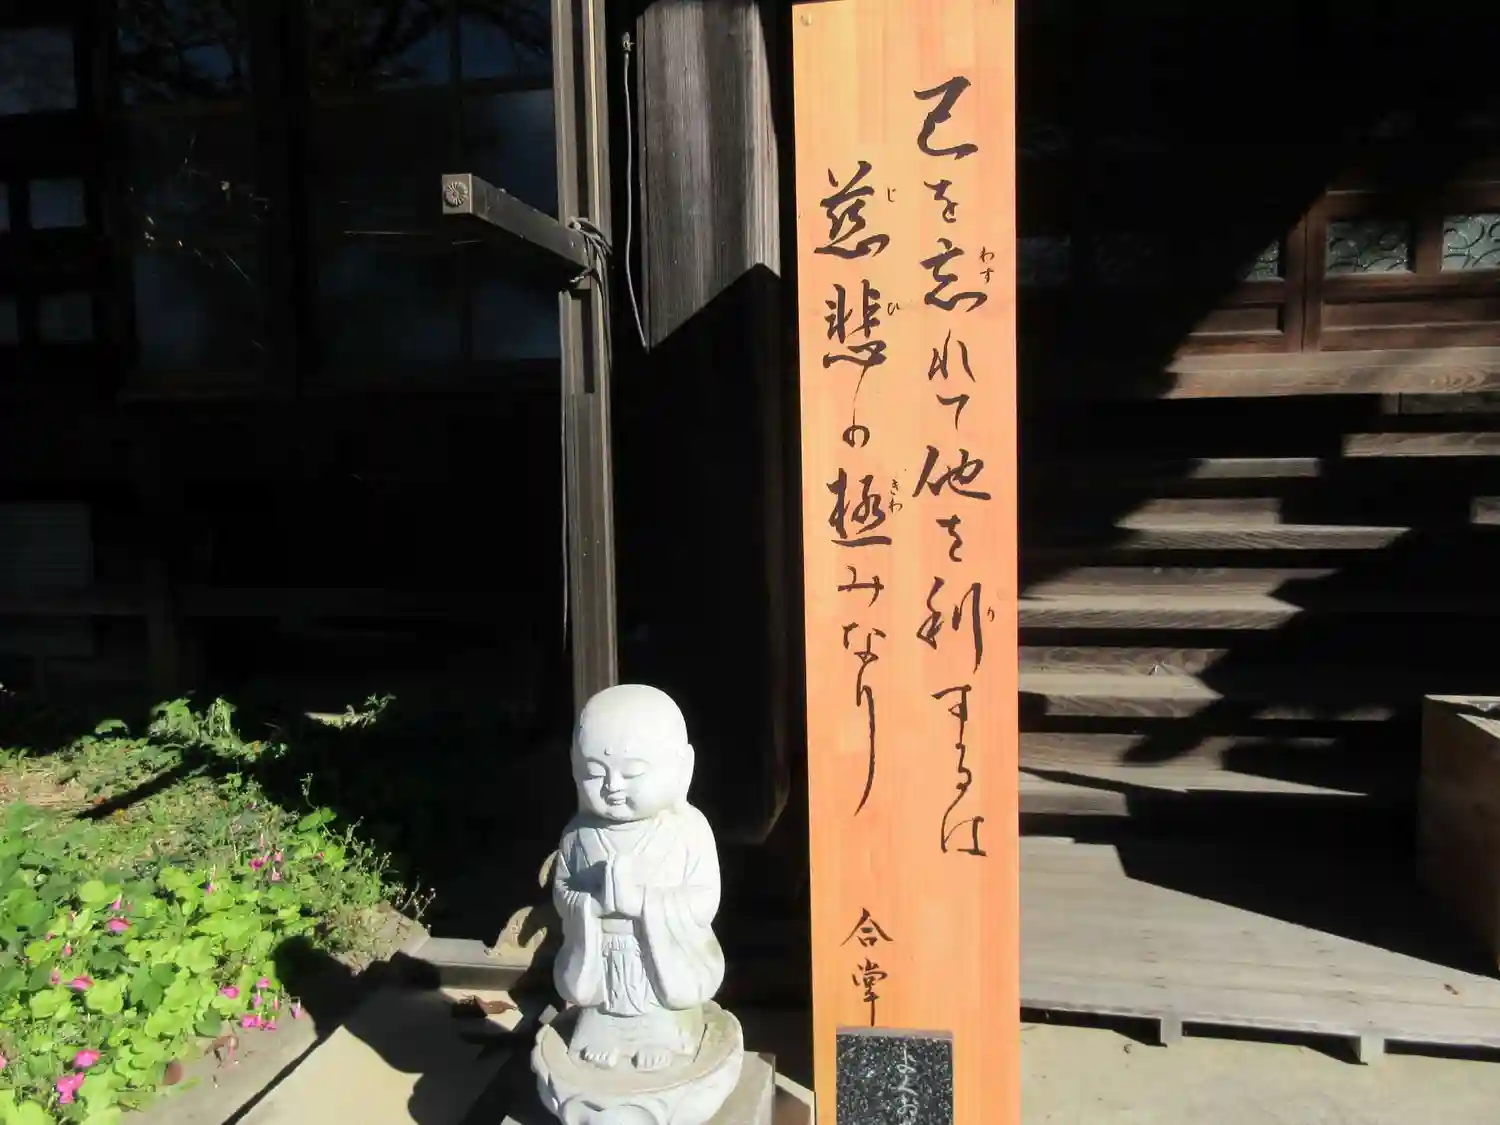 己を忘れて他を利するは
慈悲の極みなり
合掌
よくお